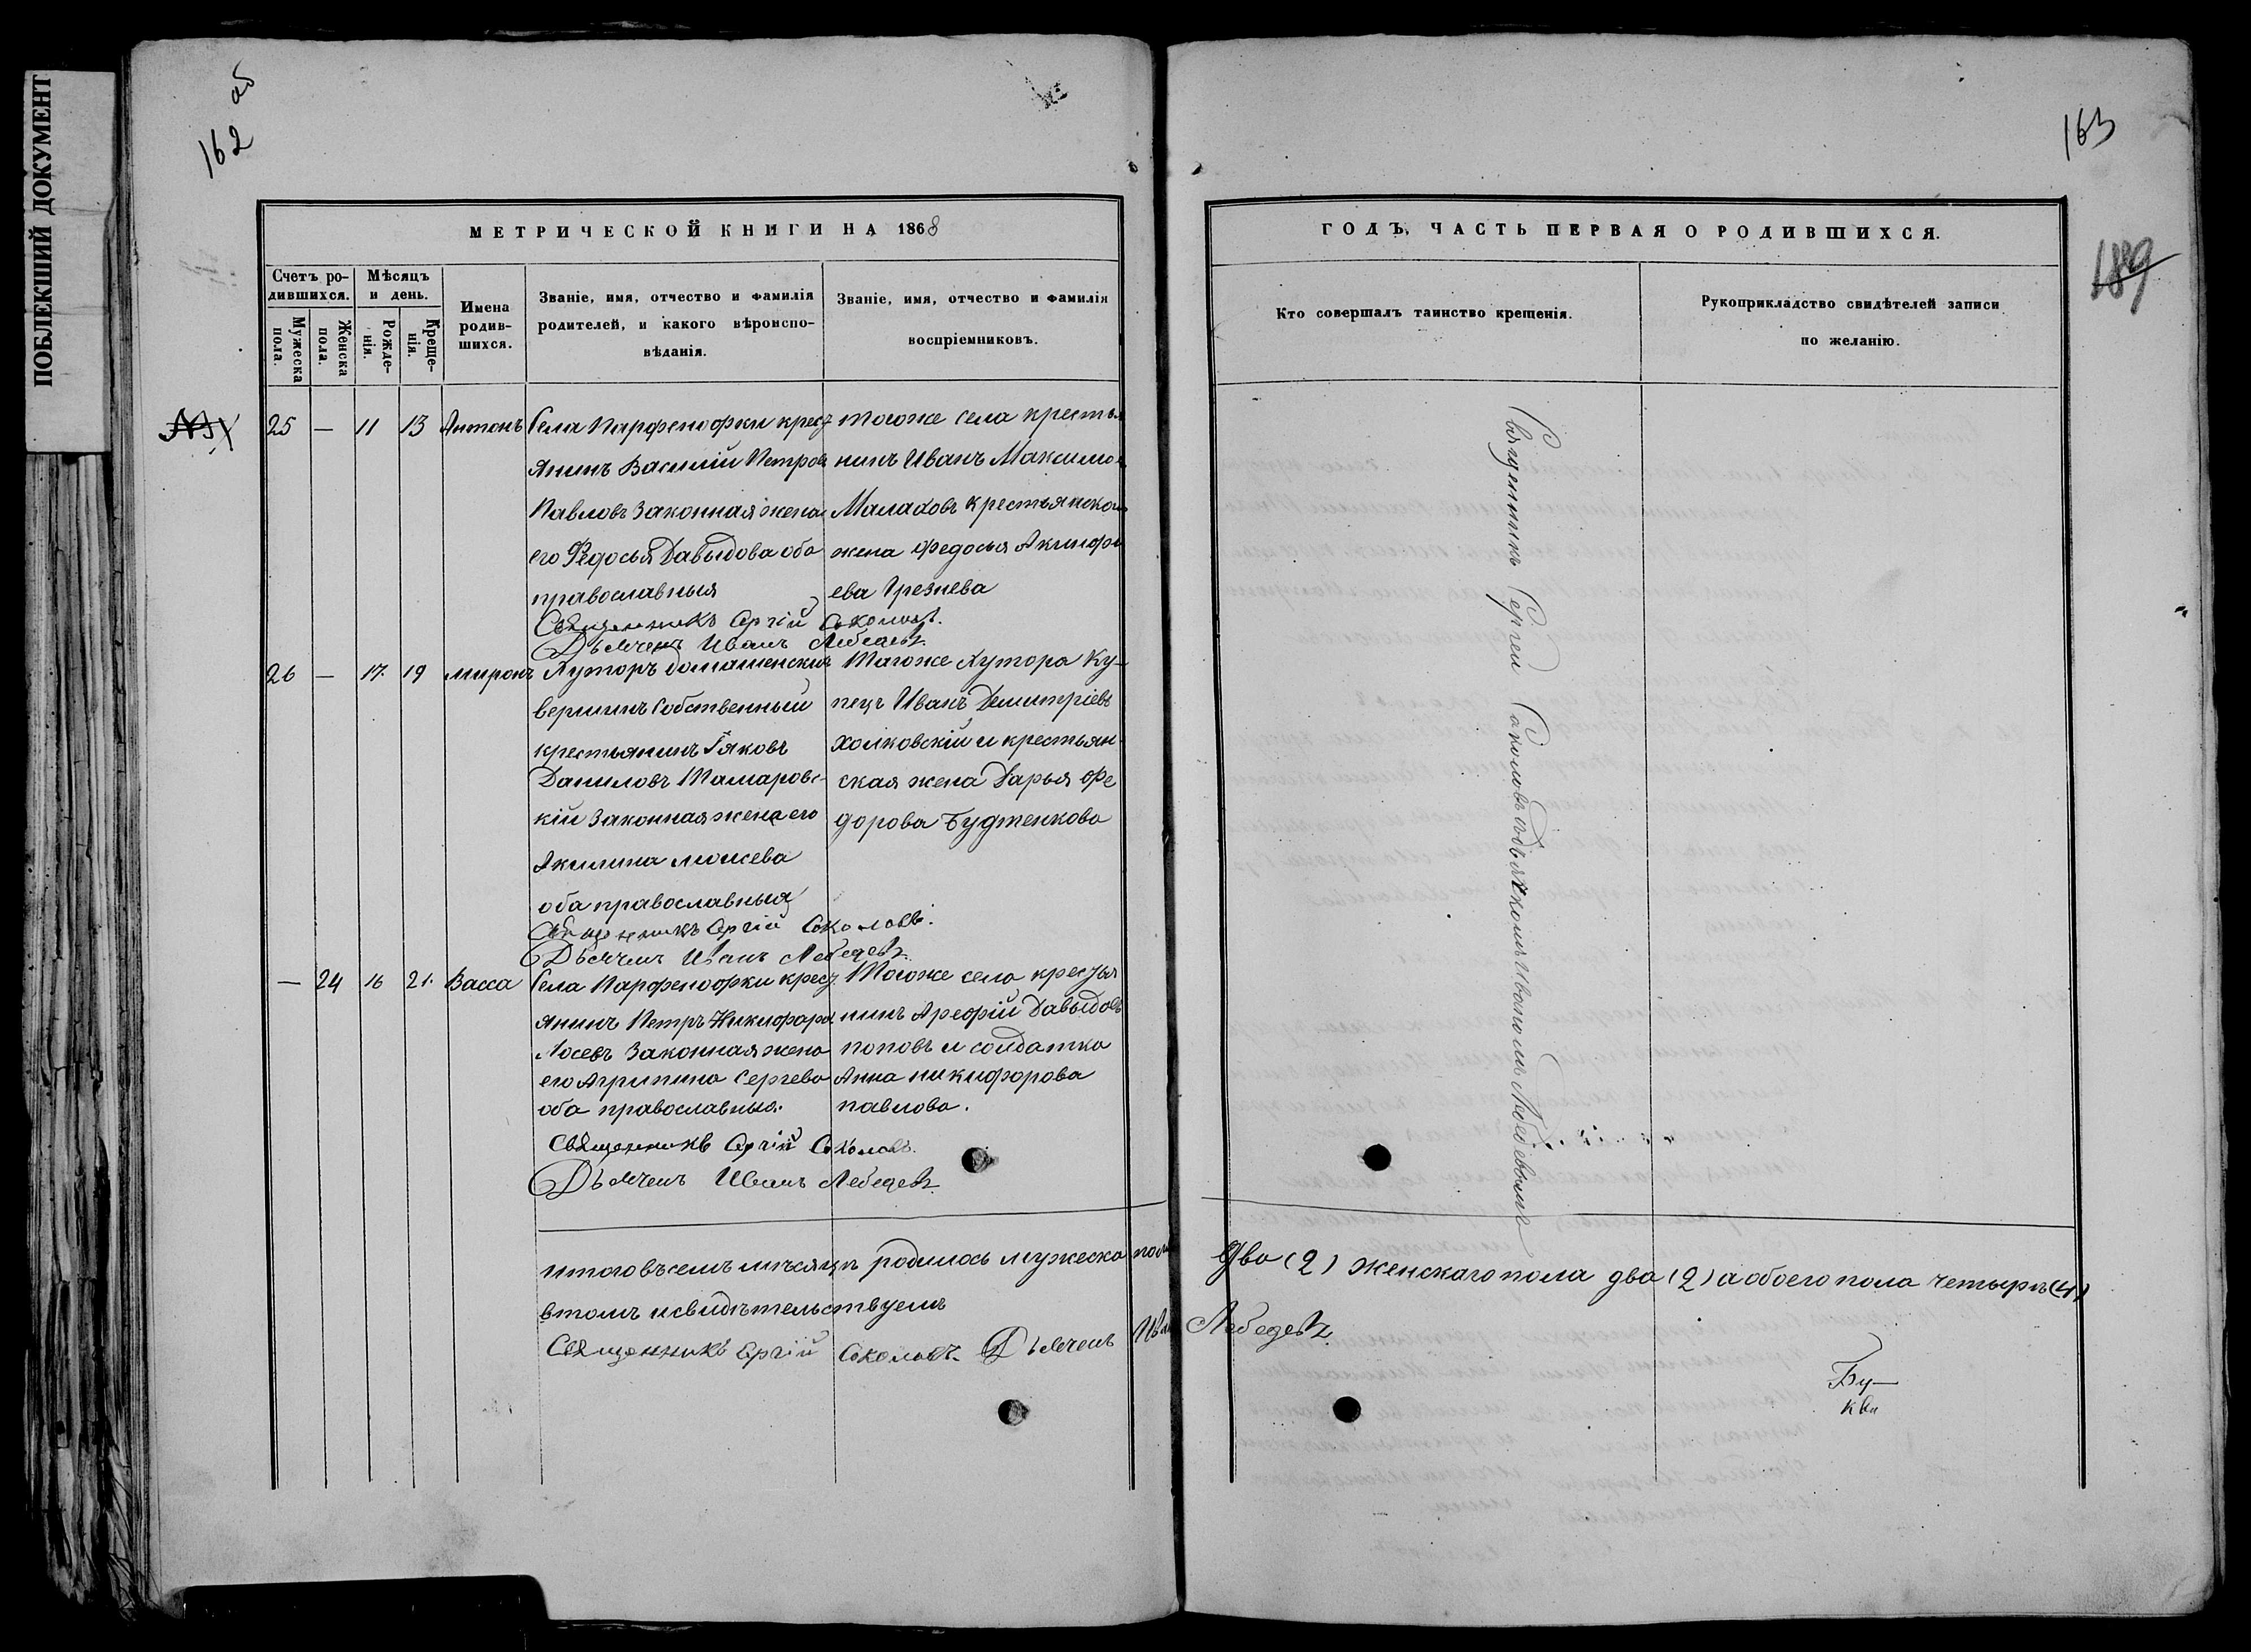 ПОБЛЕКШИЙ ДОКУМЕНТ
об
162
МЕТРИЧЕСКОЙ КНИГИ НА 1868
Счетъ родившихся.
Мужеска пола.
Женска пола.
Мѣсяцъ и день.
Рожденія.
Крещенія.
Имена родившихся.
Званіе, имя, отчество и фамилія
родителей, и какого вѣроиспо-
вѣданія.
Званіе, имя, отчество и фамилія
воспріемниковъ.
25 — 11 13 Антонъ
Села Парфенофки крест
янинъ Василій Петров
Павловъ Законная жена
его Федосья Давыдова оба
православныя
Тогоже села крестья
нинъ Иванъ Максимов
Малаховъ крестьянская
жена Федосья Акинфи
ева Грезнева
Священникъ Сергій Соколовъ.
Дьячекъ Иванъ Лебедевъ.
26 — 17. 19 Миронъ
Хуторъ домашенских
вершинъ Собственный
крестьянинъ Яковъ
Даниловъ
кій Законная жена его
Акилина
оба православныя
Тагоже Хутора Ку-
пецъ Иванъ Демитріевъ
и крестьян-
ская жена Дарья Фе
дорова
Священникъ Сергій Соколовъ.
Дьячекъ Иванъ Лебедевъ.
— 24 16 21. Васса
Села Парфенофки крест.
янинъ Петръ Никифаров
Лосевъ Законная жена
его Агрипина Сергева
оба православныя.
Тогоже села крестья
нинъ Арефій Давыдовъ
поповъ и солдатка
Анна никифорова
павлова.
Священникъ Сергій Соколовъ.
Дьячекъ Иванъ Лебедевъ.
итого въ семъ мѣсяцѣ родилось мужеска пола два (2) женскаго пола два (2) а обоего пола четыре (4)
втомъ исвидѣтельствуемъ
Священникъ Сергій Соколовъ. Дьячекъ Иван Лебедевъ.
163
189
ГОДЪ, ЧАСТЬ ПЕРВАЯ О РОДИВШИХСЯ.
Кто совершалъ таинство крещенія.
Рукоприкладство свидѣтелей записи
по желанію.
Священникъ Сергей Саколовъ съ дьячкомъ Иваномъ Лебедевымъ
Бу-
ква